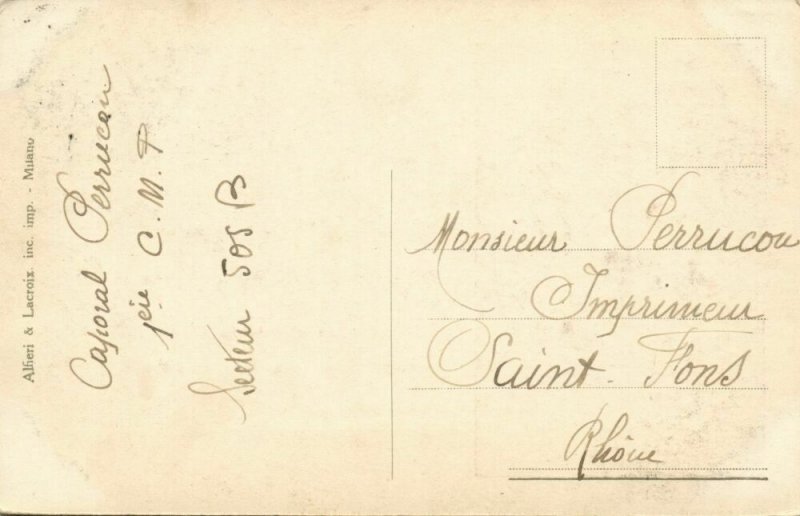 Alfieri & Lacroix. inc. imp. - Milano
Caporal Perrucon
1ère C.M.P
Secteur 505 B
Monsieur Perrucon
Imprimeur
Saint-Fons
Rhône